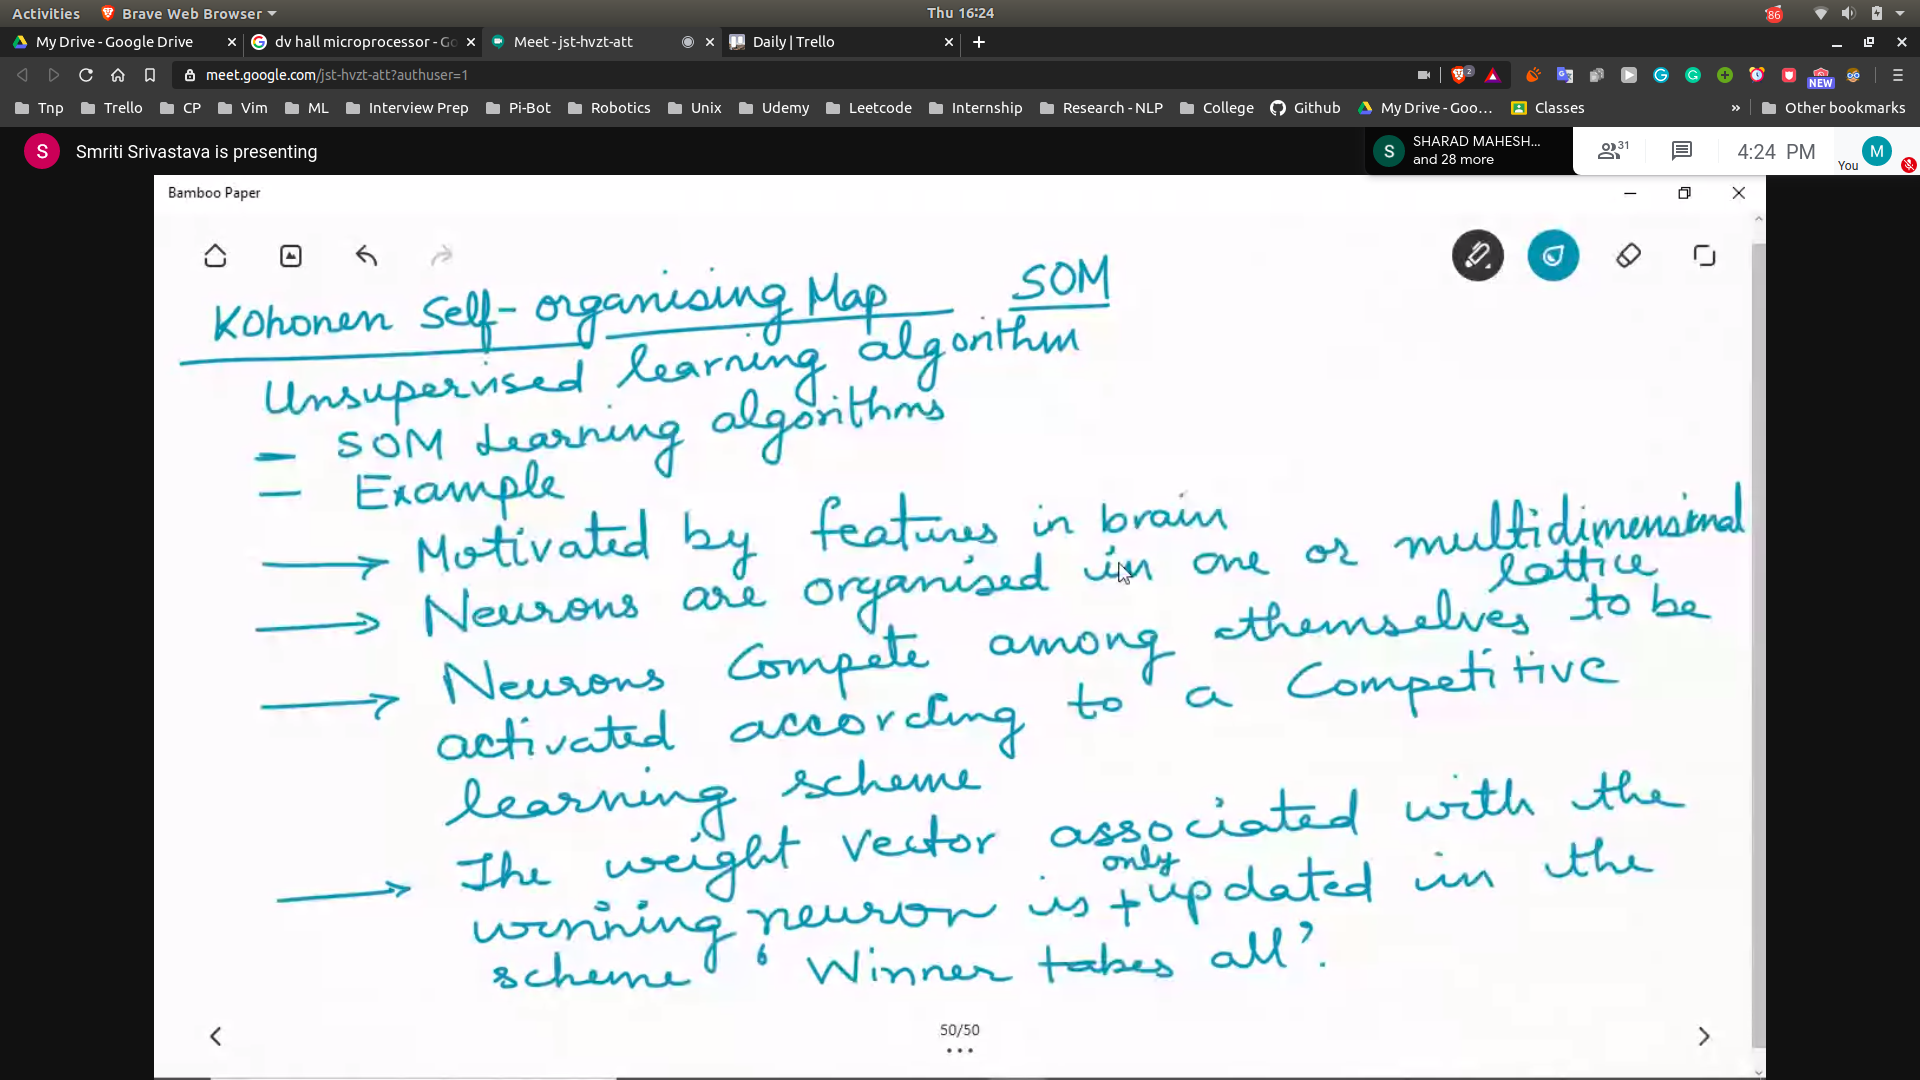 Activities Brave Web Browser Thu 16:24 86
My Drive - Google Drive dv hall microprocessor - Go Meet - jst-hvzt-att Daily | Trello
meet.google.com/jst-hvzt-att?authuser=1 2 NEW
Tnp Trello CP Vim ML Interview Prep Pi-Bot Robotics Unix Udemy Leetcode Internship Research - NLP College Github My Drive - Goo... Classes » Other bookmarks
S Smriti Srivastava is presenting
S SHARAD MAHESH...
and 28 more
31 4:24 PM You M
Bamboo Paper
Kohonen Self-organising Map SOM
Unsupervised learning algorithm
- SOM Learning algorithms
- Example
→ Motivated by features in brain
→ Neurons are organised in one or multidimensional
lattice
→ Neurons Compete among themselves to be
activated according to a Competitive
learning scheme
→ The weight vector associated with the
only
winning neuron is updated in the
scheme ‘Winner takes all’.
50/50